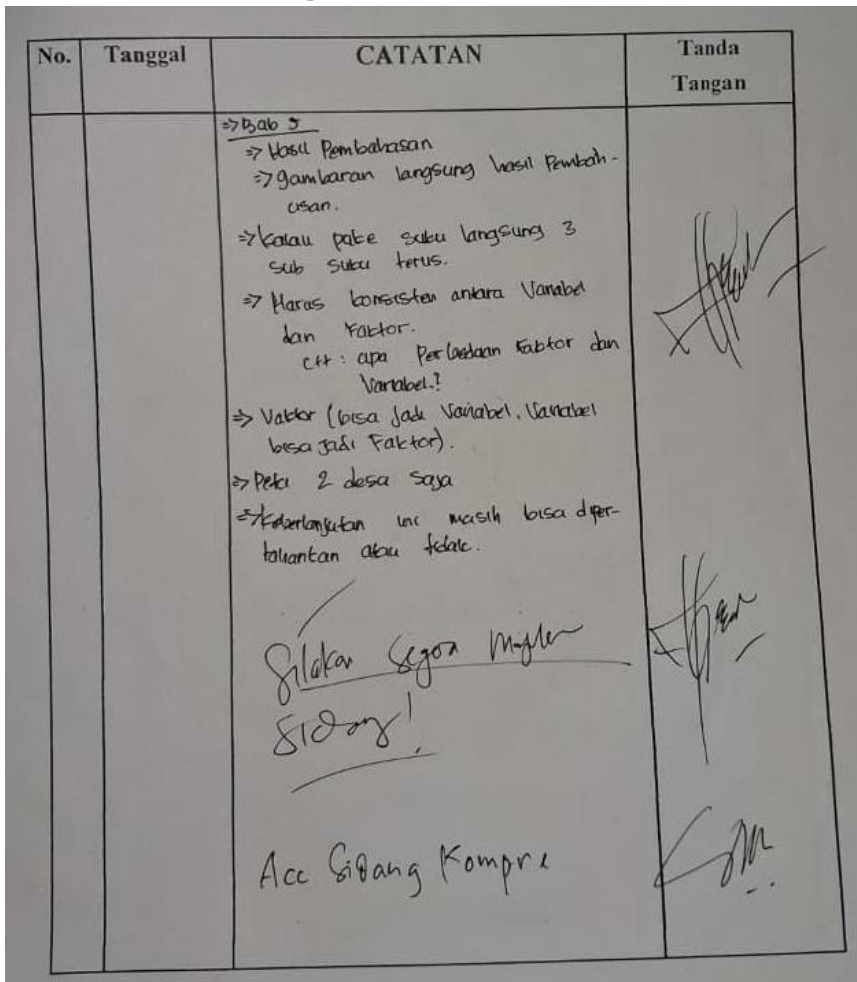 No. Tanggal CATATAN Tanda
Tangan
=> Bab 5
=> Hasil Pembahasan
=> gambaran langsung hasil Pembah-
asan.
=> kalau pake suku langsung 3
sub suku terus.
=> Harus konsisten antara Variabel
dan Faktor.
c++ : apa Perbedaan Faktor dan
Variabel.?
=> Vaktor (bisa jadi Variabel, Variabel
bisa jadi Faktor).
=> Peta 2 desa saja
=> Keberlanjutan ini masih bisa diper-
tahankan atau tidak.
Silakan Segera
Sidang!
Acc Sidang Kompre